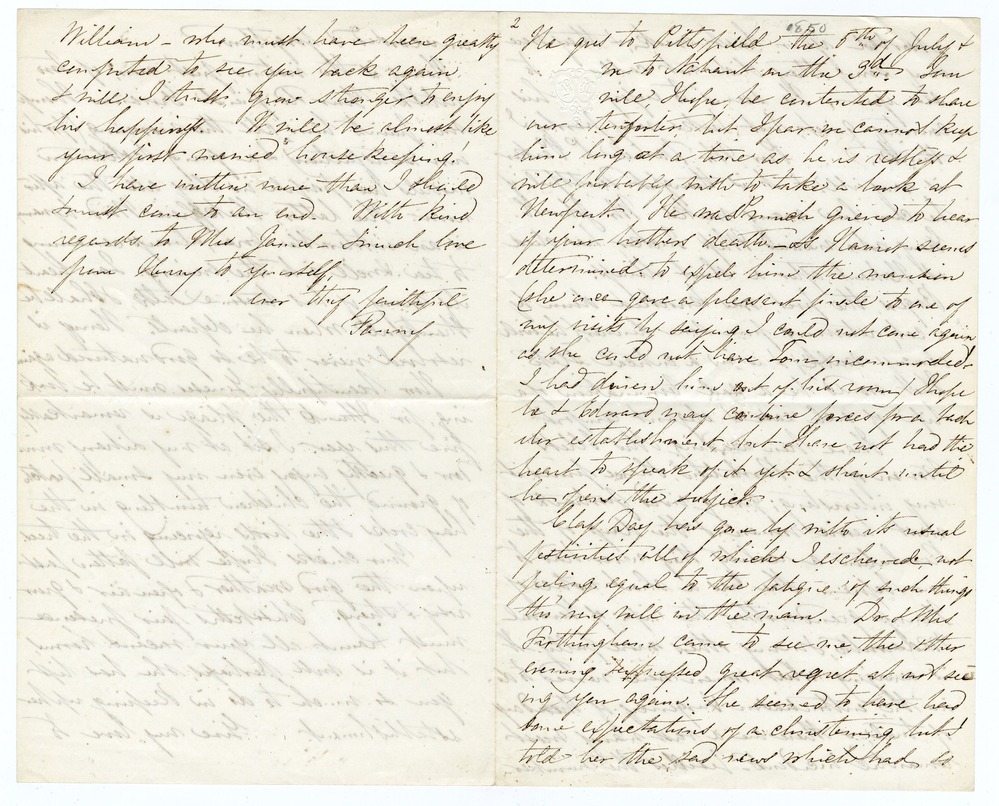 William – who must have been greatly
comforted to see you back again
& will, I trust, grow stronger to enjoy
his happiness. It will be almost like
your first married housekeeping!
I have written more than I should
& must come to an end. With kind
regards to Mrs James – & much love
from Henry to yourself,
ever thy faithful
Fanny
2
1850
He goes to Pittsfield the 6th of July &
we to Nahant on the 9d. Tom
will, I hope, be contented to share
our but I fear we cannot keep
him long at a time as he is restless &
will probably wish to take a look at
Newport. He was much grieved to hear
of your brothers death – as Harriot seems
determined to expel him the mansion
(she once gave a pleasant finale to one of
my visits by saying I could not come again
as she could not have Tom incommoded!
I had driven him out of his room) I hope
he & Edward may combine forces for a bach
elor establishment but I have not had the
heart to speak of it yet & shant until
he opens the subject.
Class Day has gone by with its usual
festivities all of which I eschewed, not
feeling equal to the fatigue of such things
tho' very well in the main. Dr & Mrs
Frothingham came to see me the other
evening, & expressed great regret at not see
ing you again. She seemed to have had
some expectations of a christening, but I
told her the sad news which had so